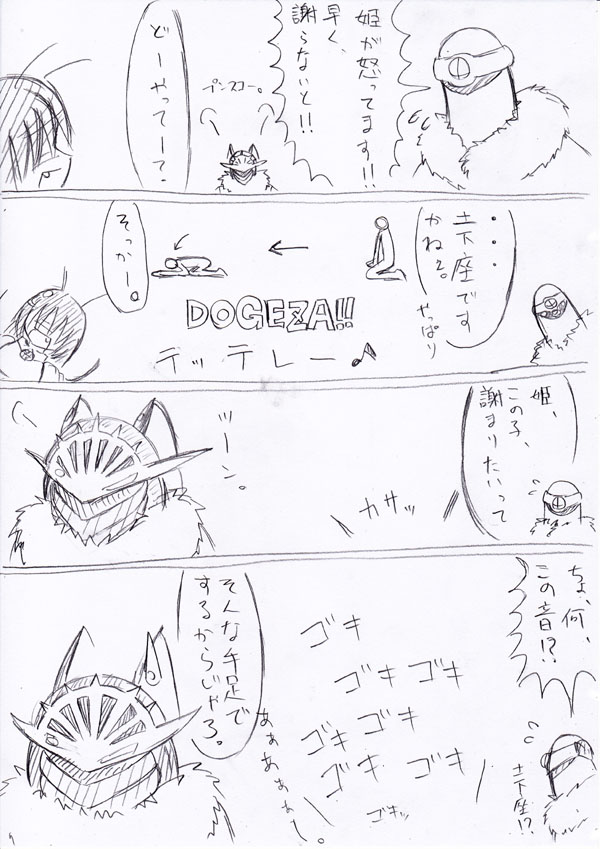 姫が怒ってます!!
早く、
謝らないと!!
プンスコー。
どーやってー?
・・・
土下座です
かね?。
やっぱり
DOGEZA!!
テッテレー♪
そっかー。
姫、
この子、
謝まりたいって
カサッ
ツーン。
ちょ、何、
この音!?
土下座!?
ゴキ
ゴキ ゴキ
ゴキ
ゴキ
ゴキ ゴキ
ゴキッ
あぁあぁぁぁー。
そんな手足で
するからじゃろ。